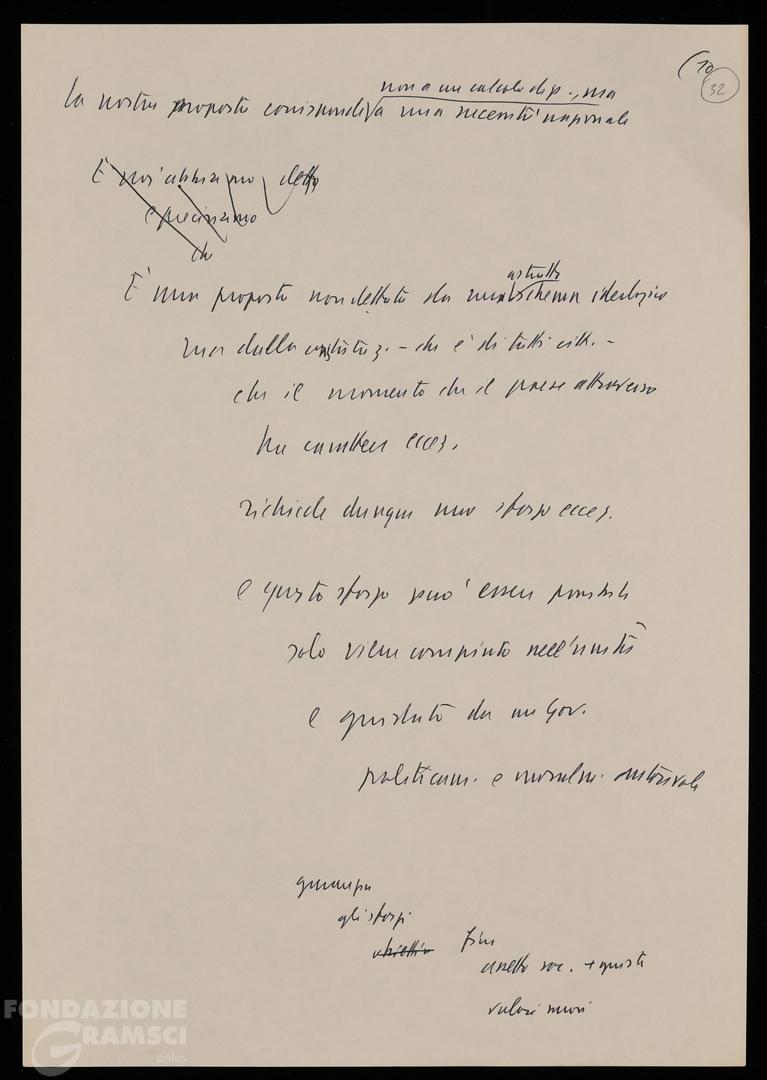 (10
32
non a un calcolo di p., ma
la nostra proposta corrisponde a una necessità nazionale
E noi abbiamo detto
e precisiamo
che
astratto
È una proposta non dettata da uno schema ideologico
ma dalla constataz. – che è di tutti citt. –
che il momento che il paese attraversa
ha carattere eccez.
richiede dunque uno sforzo eccez.
e questo sforzo può essere possibile
solo viene compiuto nell'unità
e guidato da un Gov.
politicam. e moralm. autorevole
garanzia
gli sforzi
obiettivo fini
assetto soc. + giusto
valori nuovi
FONDAZIONE
GRAMSCI
onlus